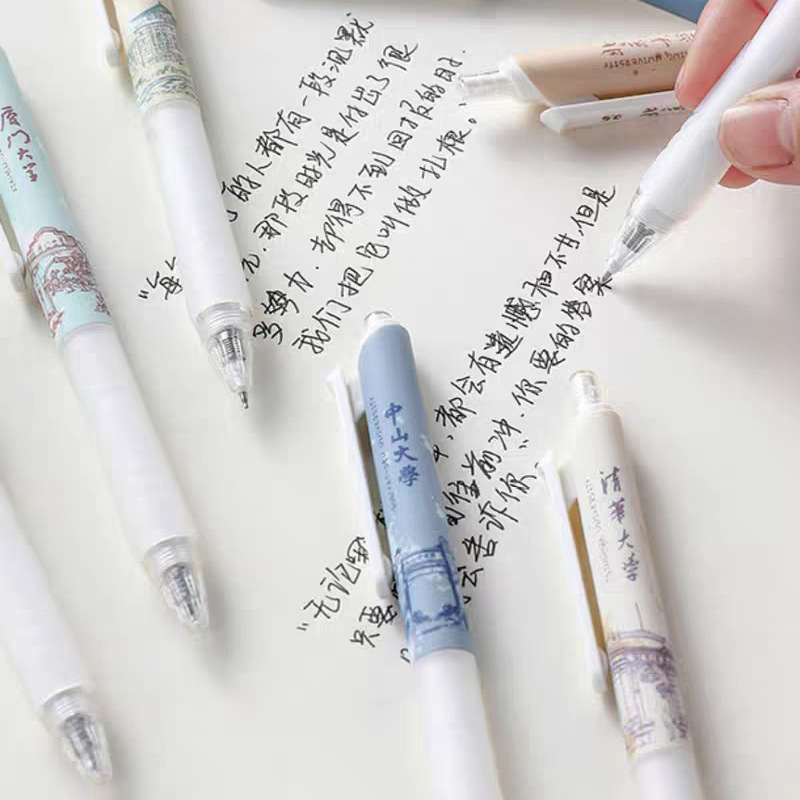 厦门大学
UNIVERSITY
“每 的人都有一段沉默
那段时光是付出了很
多努力.却得不到回报的日
我们把它叫做扎根。”
“无论 都会有遗憾和不甘.但是
只要 往前冲.你要的答案
会告诉你”
中山大學
清華大学